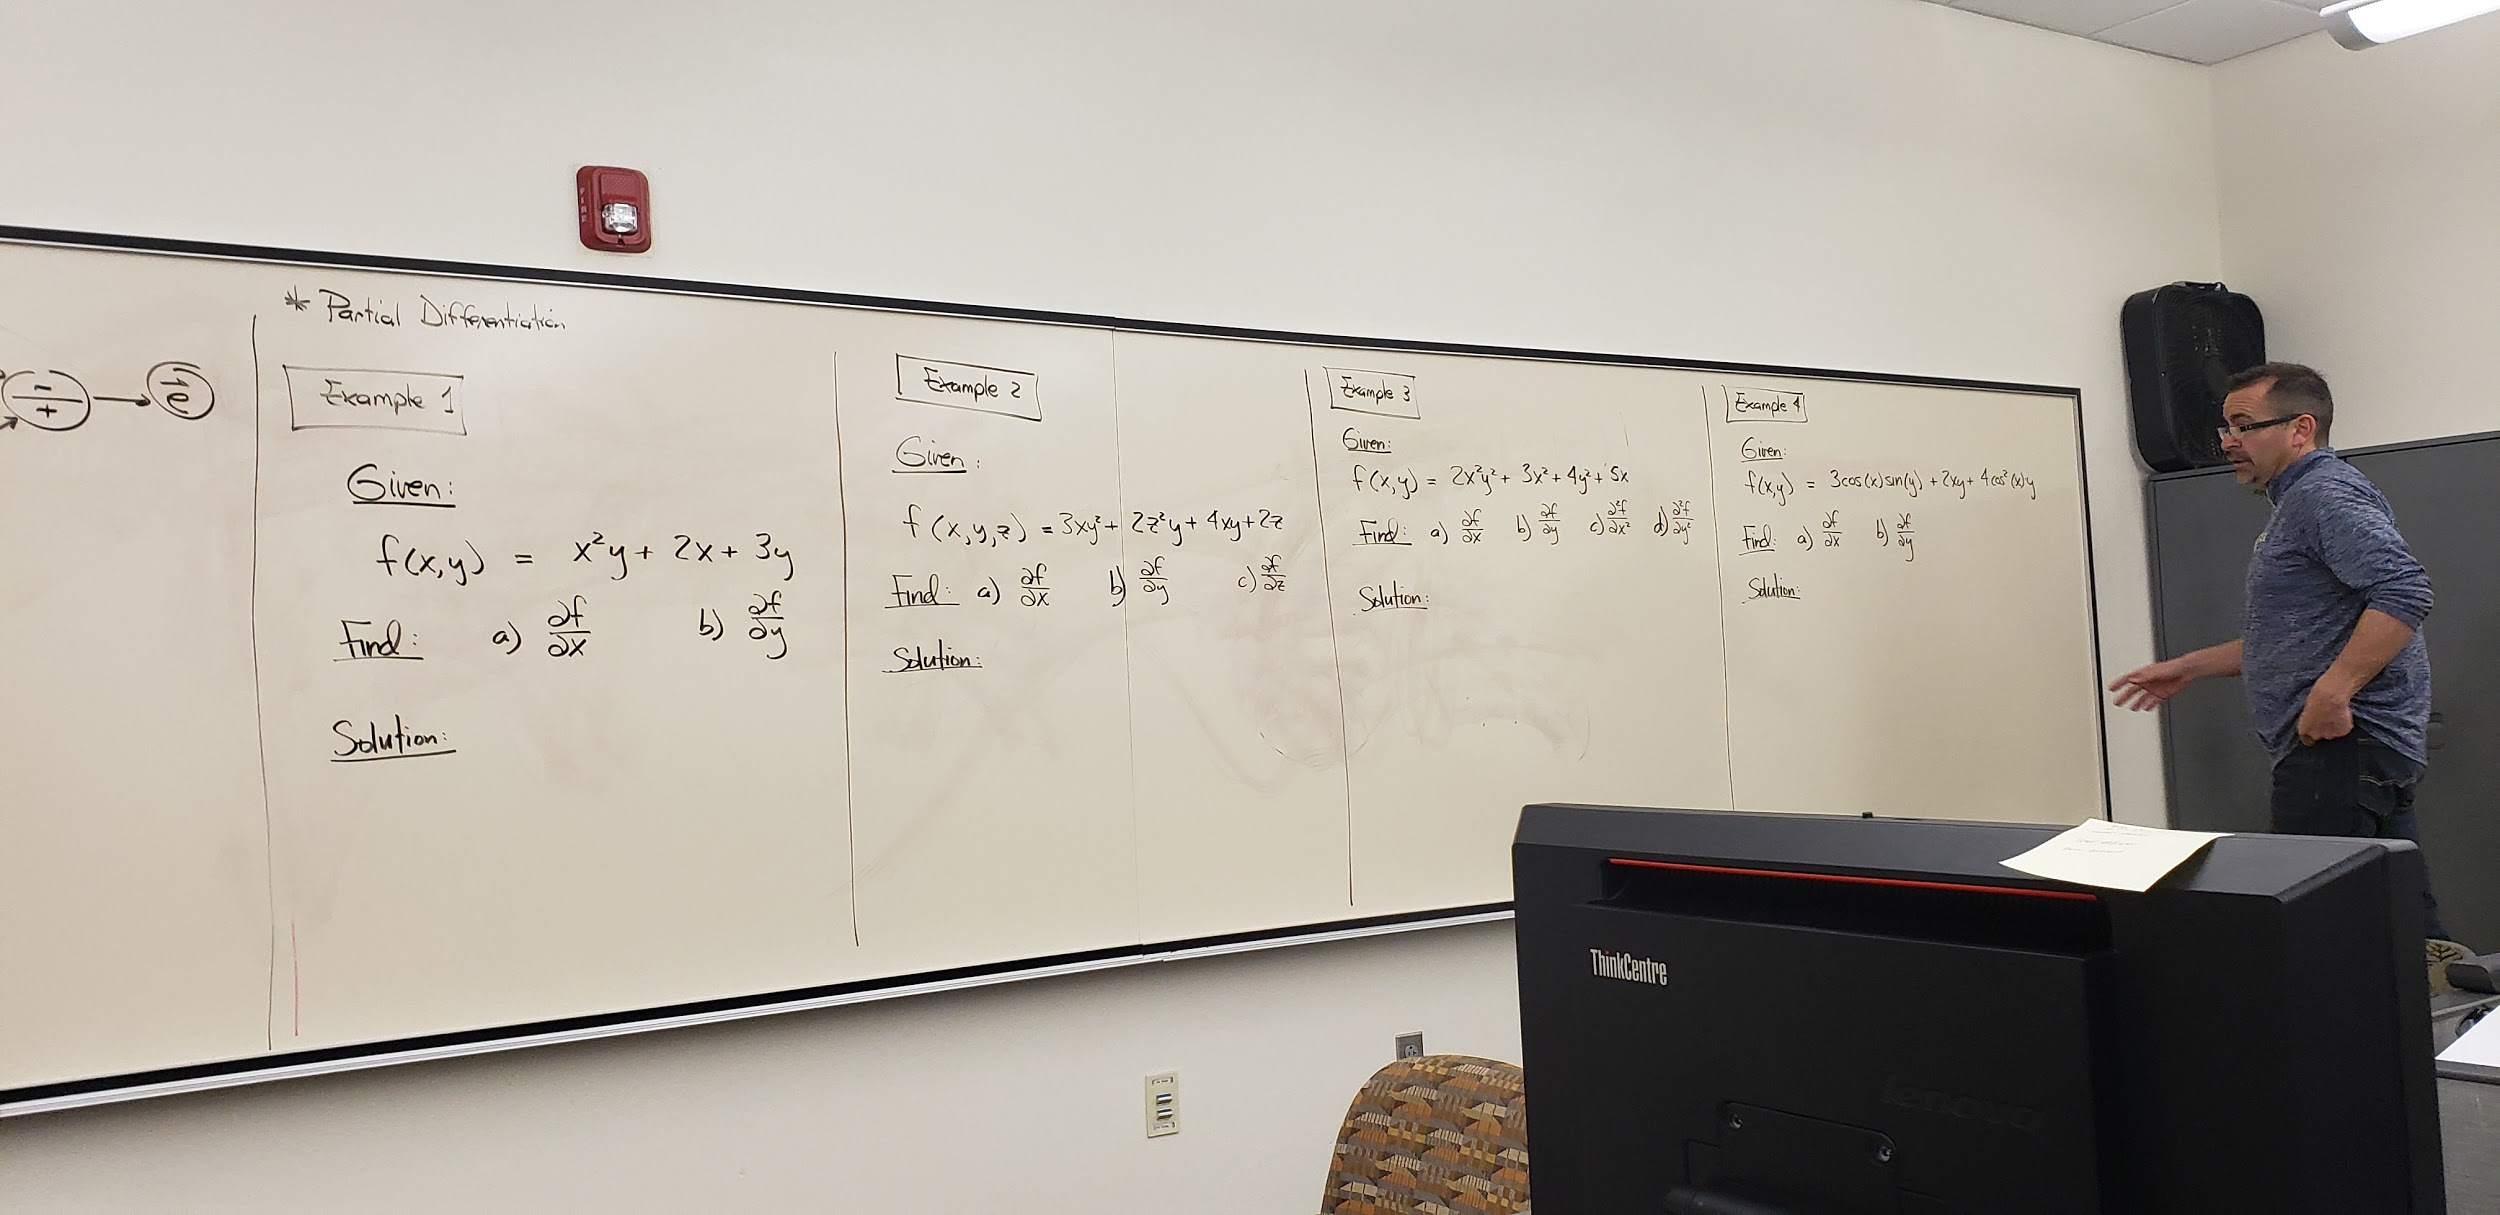 * Partial Differentiation
− + → e⃗
Example 1
Given:
f(x,y) = x²y + 2x + 3y
Find: a) ∂f/∂x b) ∂f/∂y
Solution:
Example 2
Given:
f(x,y,z) = 3xy² + 2z²y + 4xy + 2z
Find: a) ∂f/∂x b) ∂f/∂y c) ∂f/∂z
Solution:
Example 3
Given:
f(x,y) = 2x²y² + 3x² + 4y² + 5x
Find: a) ∂f/∂x b) ∂f/∂y c) ∂²f/∂x² d) ∂²f/∂y²
Solution:
Example 4
Given:
f(x,y) = 3cos(x)sin(y) + 2xy + 4cos²(x)y
Find: a) ∂f/∂x b) ∂f/∂y
Solution:
FIRE
ThinkCentre
lenovo